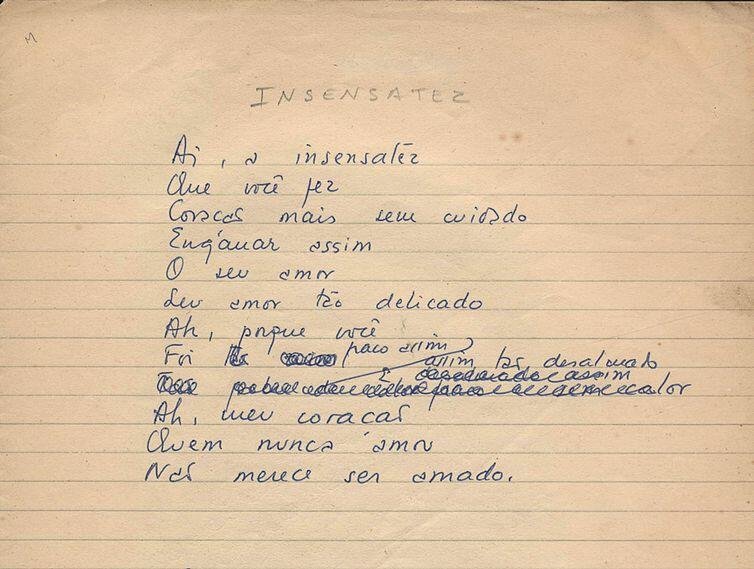 M
INSENSATEZ
Ai, a insensatêz
Que você fez
Coração mais sem cuidado
Enganar assim
O seu amor
Seu amor tão delicado
Ah, porque você
Foi fraco assim
assim tão desalmado
Ah, meu coração
Quem nunca amou
Não merece ser amado.